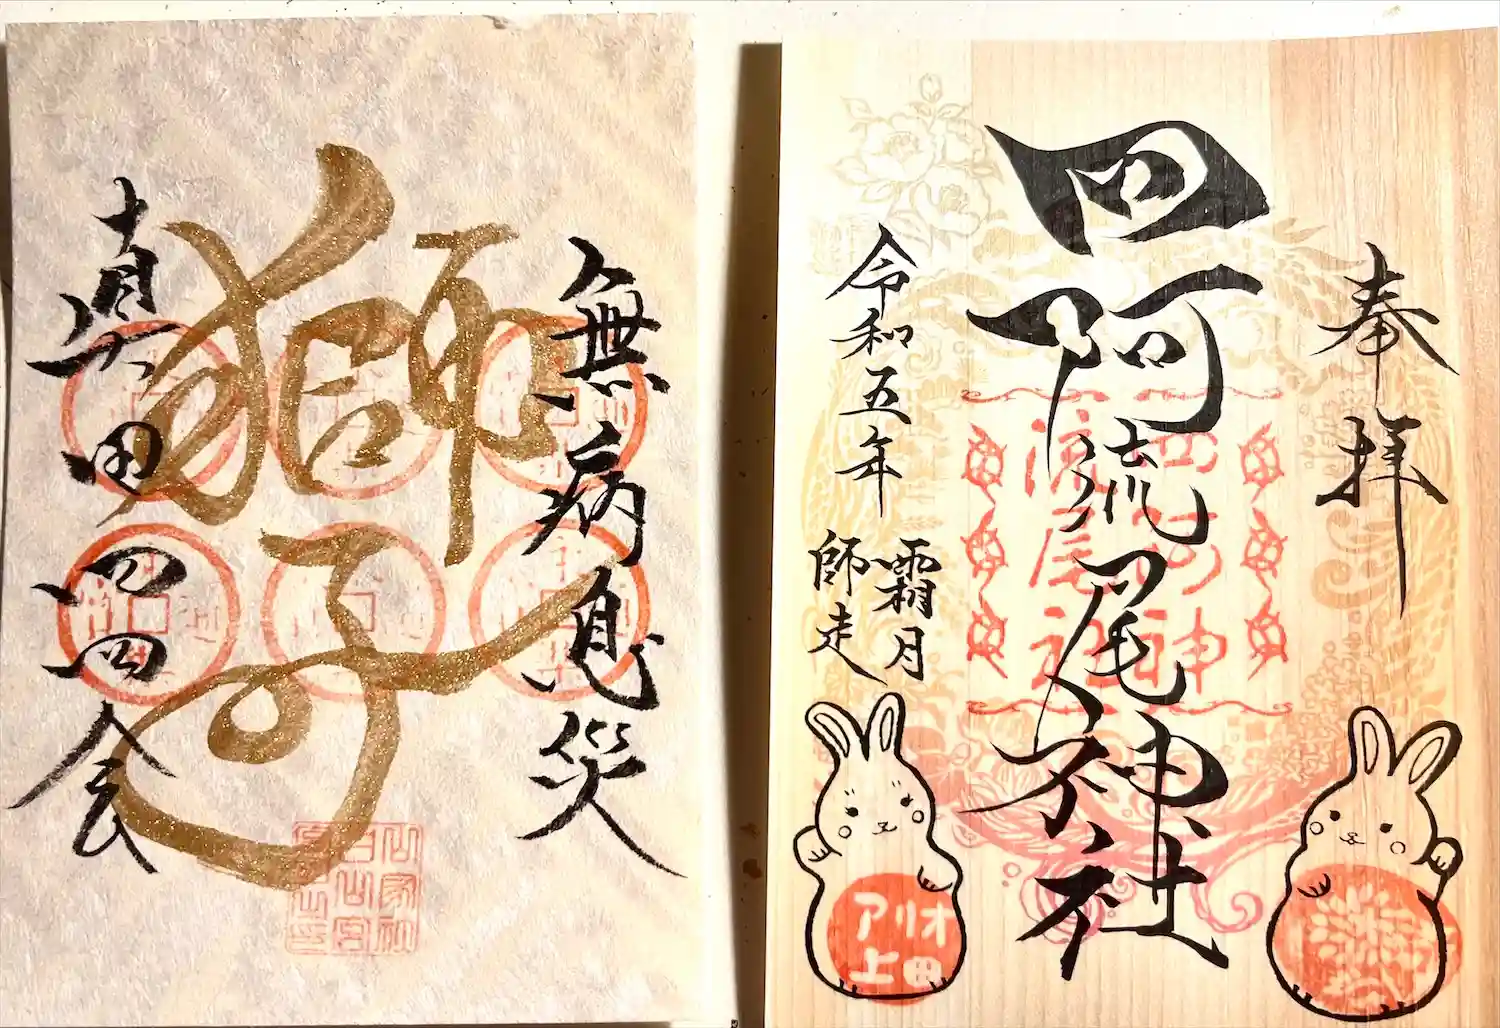 無病息災
獅子
真田四四会
奉拝
四阿流尾神社
令和五年
霜月
師走
アリオ
上田